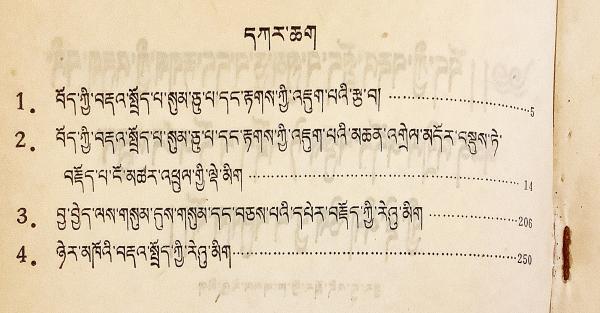 དཀར་ཆག
1. བོད་ཀྱི་བརྡའ་སྤྲོད་པ་སུམ་ཅུ་པ་དང་རྟགས་ཀྱི་འཇུག་པའི་རྩ་བ། 5
2. བོད་ཀྱི་བརྡའ་སྤྲོད་པ་སུམ་ཅུ་པ་དང་རྟགས་ཀྱི་འཇུག་པའི་མཆན་འགྲེལ་མདོར་བསྡུས་ཏེ་
བརྗོད་པ་ངོ་མཚར་འཕྲུལ་གྱི་ལྡེ་མིག 14
3. བྱ་བྱེད་ལས་གསུམ་དུས་གསུམ་དང་བཅས་པའི་དཔེར་བརྗོད་ཀྱི་རེའུ་མིག 206
4. ཉེར་མཁོའི་བརྡའ་སྤྲོད་ཀྱི་རེའུ་མིག 250